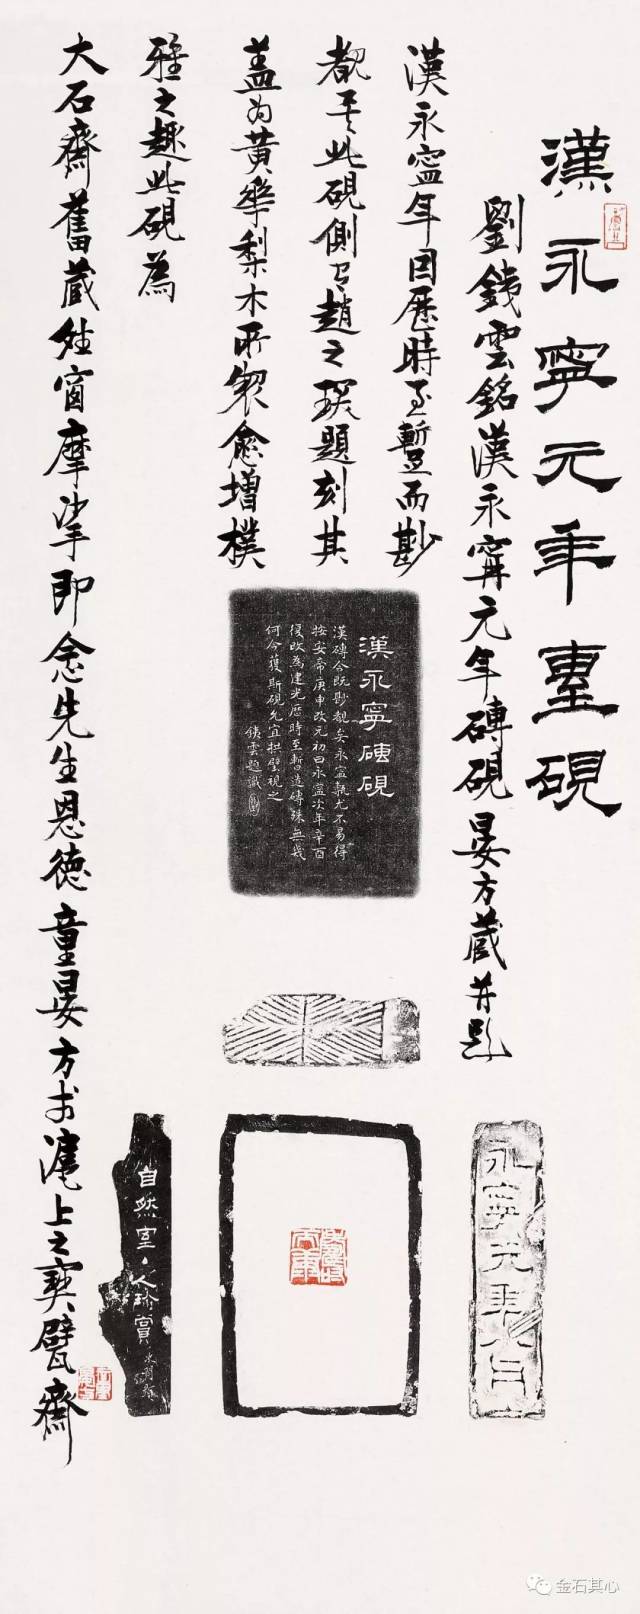 漢永寧元年專硯
劉銕雲銘漢永寧元年磚硯晏方藏并題
漢永寧年因歷時至暫而尠
覩至此硯側有趙之琛題刻其
蓋為黃華梨木所製愈增樸
雅之趣此硯為
大石齋舊藏雖窗摩挲即念先生恩德童晏方書於滬上之寶甓齋
漢永寧磚硯
漢磚今既尠覩矣永寧執尤不易得
按安帝庚申改元初曰永寧次年辛酉
復改為建光歷時至暫造磚殊無幾
何今獲斯硯允宜拱璧視之
銕雲題識
自然室主人珍賞
永寧元年六月
金石其心